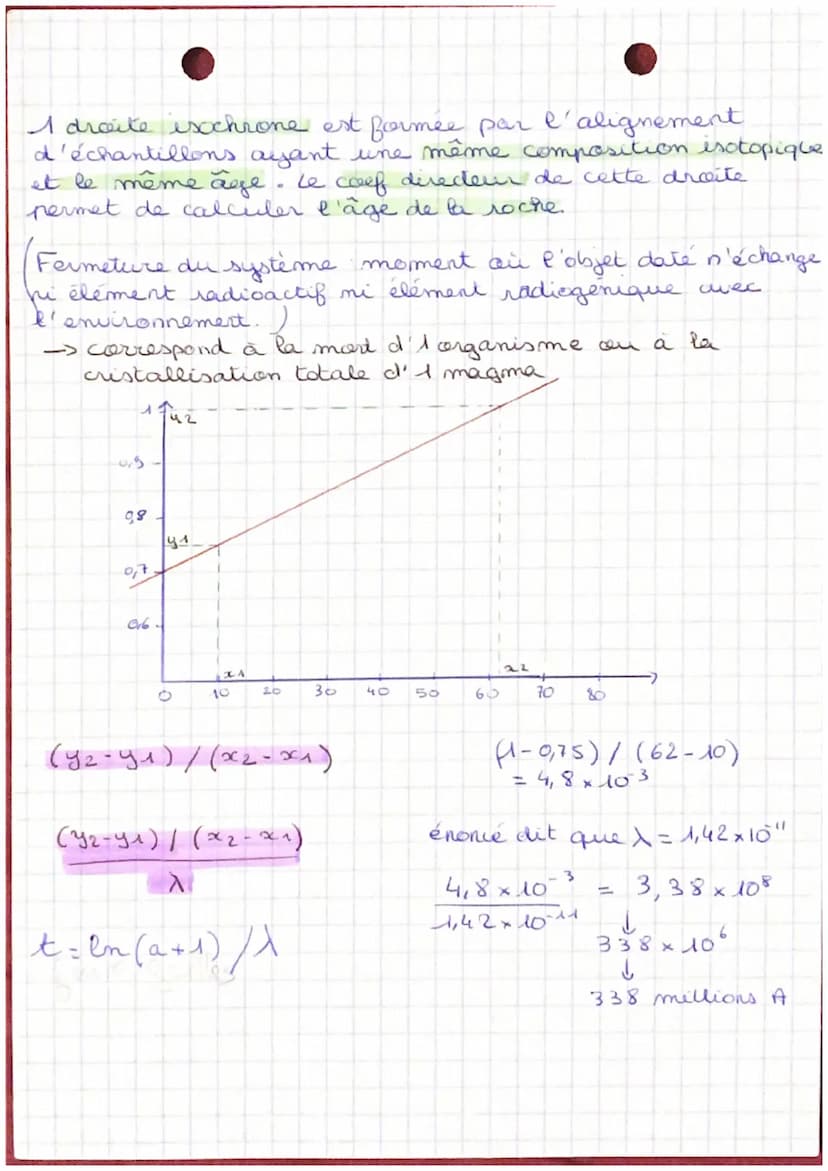 1 droite isochrone est formée par l'alignement
d'échantillons ayant une même composition isotopique
et le même âge. Le coef directeur de cette droite
permet de calculer l'âge de la roche.
(Fermeture du système moment où l'objet daté n'échange
ni élément radioactif ni élément radiogénique avec
l'environnement.)
→ correspond à la mort d'1 organisme ou à la
cristallisation totale d'1 magma
1 y2
0,9
0,8
y1
0,7
0,6
x1 x2
0 10 20 30 40 50 60 70 80
(y2-y1)/(x2-x1) (1-0,75)/(62-10)
= 4,8 x 10-3
(y2-y1)/(x2-x1) énoncé dit que λ = 1,42 x 10-11
λ
4,8 x 10-3 = 3,38 x 10⁸
1,42 x 10-11 ↓
t = ln(a+1)/λ 338 x 10⁶
↓
338 millions A